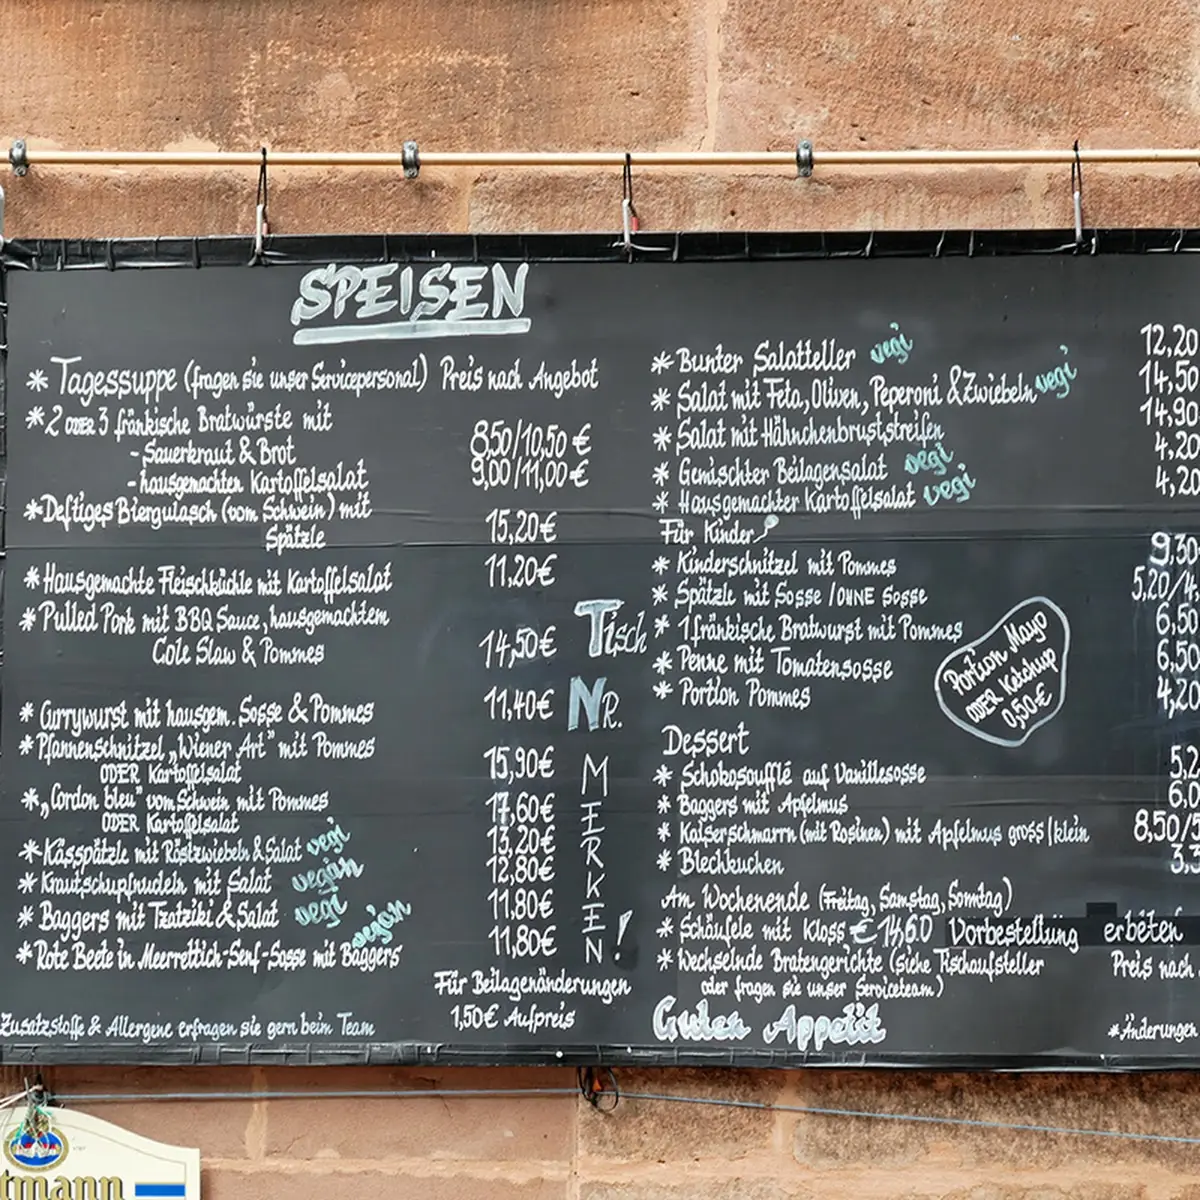 SPEISEN
* Tagessuppe (fragen sie unser Servicepersonal) Preis nach Angebot
* 2 ODER 3 fränkische Bratwürste mit
- Sauerkraut & Brot 8,50/10,50 €
- hausgemachten Kartoffelsalat 9,00/11,00 €
* Deftiges Biergulasch (vom Schwein) mit
Spätzle 15,20€
* Hausgemachte Fleischküchle mit Kartoffelsalat 11,20€
* Pulled Pork mit BBQ Sauce, hausgemachtem
Cole Slaw & Pommes 14,50€
* Currywurst mit hausgem. Sosse & Pommes 11,40€
* Pfannenschnitzel „Wiener Art" mit Pommes
ODER Kartoffelsalat 15,90€
* „Cordon bleu" vom Schwein mit Pommes
ODER Kartoffelsalat 17,60€
* Kässpätzle mit Röstzwiebeln & Salat vegi 13,20€
* Krautschupfnudeln mit Salat vegan 12,80€
* Baggers mit Tzatziki & Salat vegi 11,80€
* Rote Beete in Meerrettich-Senf-Sosse mit Baggers vegan 11,80€
Für Beilagenänderungen
1,50€ Aufpreis
Zusatzstoffe & Allergene erfragen sie gern beim Team
Tisch
NR.
MERKEN!
* Bunter Salatteller vegi 12,20
* Salat mit Feta, Oliven, Peperoni & Zwiebeln vegi 14,50
* Salat mit Hähnchenbruststreifen 14,90
* Gemischter Beilagensalat vegi 4,20
* Hausgemachter Kartoffelsalat vegi 4,20
Für Kinder
* Kinderschnitzel mit Pommes 9,30
* Spätzle mit Sosse / OHNE Sosse 5,20/4
* 1 fränkische Bratwurst mit Pommes 6,50
* Penne mit Tomatensosse 6,50
* Portion Pommes 4,20
Portion Mayo
ODER Ketchup
0,50€
Dessert
* Schokosoufflé auf Vanillesosse 5,2
* Baggers mit Apfelmus 6,0
* Kaiserschmarrn (mit Rosinen) mit Apfelmus gross/klein 8,50/5
* Blechkuchen 3,3
Am Wochenende (Freitag, Samstag, Sonntag)
* Schäufele mit Kloss € 14,60 Vorbestellung erbeten
* Wechselnde Bratengerichte (siehe Tischaufsteller Preis nach
oder fragen sie unser Serviceteam)
Guten Appetit
*Änderungen
tmann